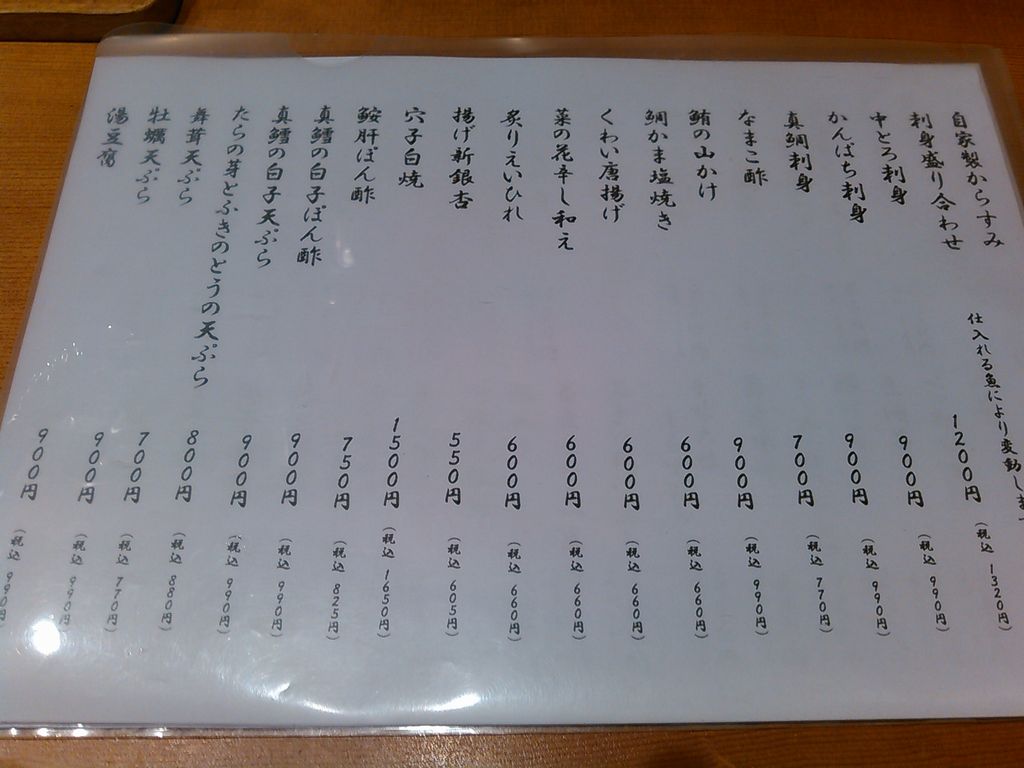 自家製からすみ
刺身盛り合わせ 仕入れる魚により変動し
中とろ刺身 1200円 (税込 1320円)
かんぱち刺身 900円 (税込 990円)
真鯛刺身 900円 (税込 990円)
なまこ酢 700円 (税込 770円)
鮪の山かけ 900円 (税込 990円)
鯛かま塩焼き 600円 (税込 660円)
くわい唐揚げ 600円 (税込 660円)
菜の花辛し和え 600円 (税込 660円)
炙りえいひれ 600円 (税込 660円)
揚げ新銀杏 550円 (税込 605円)
穴子白焼 1500円 (税込 1650円)
鮟肝ぽん酢 750円 (税込 825円)
真鱈の白子ぽん酢 900円 (税込 990円)
真鱈の白子天ぷら 900円 (税込 990円)
たらの芽とふきのとうの天ぷら 800円 (税込 880円)
舞茸天ぷら 700円 (税込 770円)
牡蠣天ぷら 900円 (税込 990円)
湯豆腐 900円 (税込 990円)